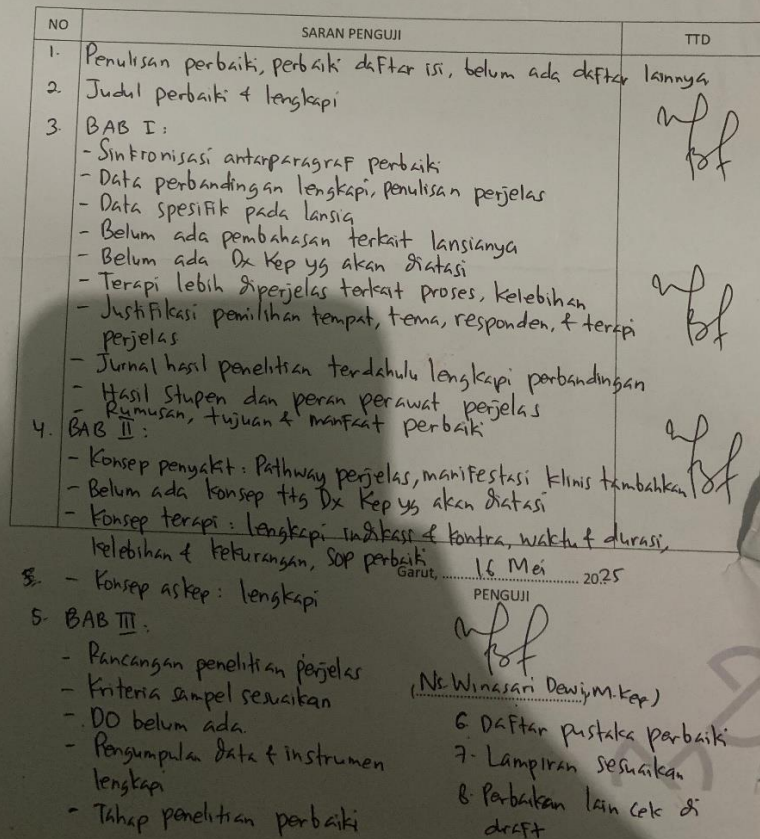 NO SARAN PENGUJI TTD
1. Penulisan perbaiki, perbaiki daftar isi, belum ada daftar lainnya
2. Judul perbaiki & lengkapi
3. BAB I :
- Sinkronisasi antarparagraf perbaiki
- Data perbandingan lengkapi, penulisan perjelas
- Data spesifik pada lansia
- Belum ada pembahasan terkait lansianya
- Belum ada Dx Kep yg akan diatasi
- Terapi lebih diperjelas terkait proses, kelebihan
- Justifikasi pemilihan tempat, tema, responden, & terapi
perjelas
- Jurnal hasil penelitian terdahulu lengkapi perbandingan
- Hasil Stupen dan peran perawat perjelas
- Rumusan, tujuan & manfaat perbaiki
4. BAB II :
- Konsep penyakit : Pathway perjelas, manifestasi klinis tambahkan
- Belum ada konsep ttg Dx Kep yg akan diatasi
- Konsep terapi : lengkapi indikasi & kontra, waktu & durasi,
kelebihan & kekurangan, SOP perbaiki
- Konsep askep : lengkapi
Garut, 16 Mei 2025
PENGUJI
(Ns. Winasari Dewi, M.Kep)
5. BAB III :
- Rancangan penelitian perjelas
- Kriteria sampel sesuaikan
- DO belum ada.
- Pengumpulan data & instrumen
lengkapi
- Tahap penelitian perbaiki
6. Daftar pustaka perbaiki
7. Lampiran sesuaikan
8. Perbaikan lain cek di
draft